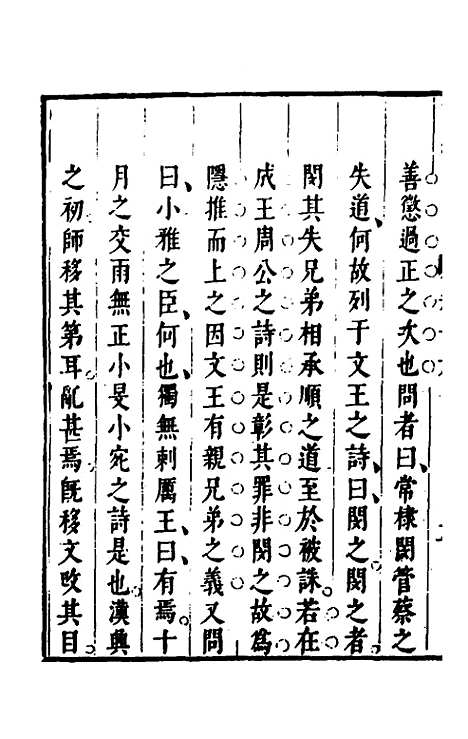 善懲過正之次也問者曰常棣閔管蔡之
失道何故列于文王之詩曰閔之閔之者
閔其失兄弟相承順之道至於被誅若在
成王周公之詩則是彰其罪非閔之故為
隱推而上之因文王有親兄弟之義又問
曰小雅之臣何也獨無刺厲王曰有焉十
月之交雨無正小旻小宛之詩是也漢興
之初師移其第耳亂甚焉既移文改其目